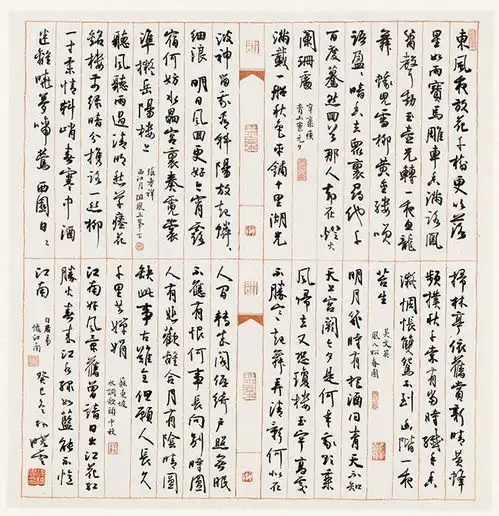 東風夜放花千樹更吹落
星如雨寶馬雕車香滿路鳳
簫聲動玉壺光轉一夜魚龍
舞蛾兒雪柳黃金縷笑
語盈暗香去眾裏尋他千
百度驀然回首那人卻在燈火
闌珊處
辛棄疾
青玉案元夕
滿載一船秋色平鋪十里湖光
波神留我看斜陽放起鱗鱗
細浪明日風回更好今宵露
宿何妨水晶宮裏奏霓裳
準擬岳陽樓上
張孝祥
西江月阻風三峰下
聽風聽雨過清明愁草瘞花
銘樓前綠暗分攜路一絲柳
一寸柔情料峭春寒中酒
迷離曉夢啼鶯西園日日
掃林亭依舊賞新晴黃蜂
頻撲秋千索有當時纖手香
凝惆悵雙鴛不到幽階一夜
苔生
吳文英
風入松春園
明月幾時有把酒問青天不知
天上宮闕今夕是何年我欲乘
風歸去又恐瓊樓玉宇高處
不勝寒起舞弄清影何似在
人間轉朱閣低綺戶照無眠
不應有恨何事長向別時圓
人有悲歡離合月有陰晴圓
缺此事古難全但願人長久
千里共嬋娟
蘇東坡
水調歌頭中秋
江南好風景舊曾諳日出江花紅
勝火春來江水綠如藍能不憶
江南
白居易
憶江南
癸巳冬